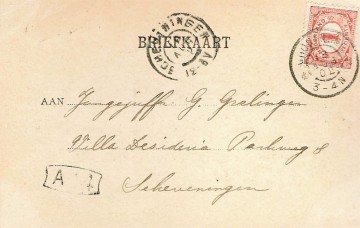 SCHEVENINGEN
BRIEFKAART
3-4N
AAN Jongejuffr. G. Gratingen
Villa Desideria Parkweg 8
Scheveningen
A